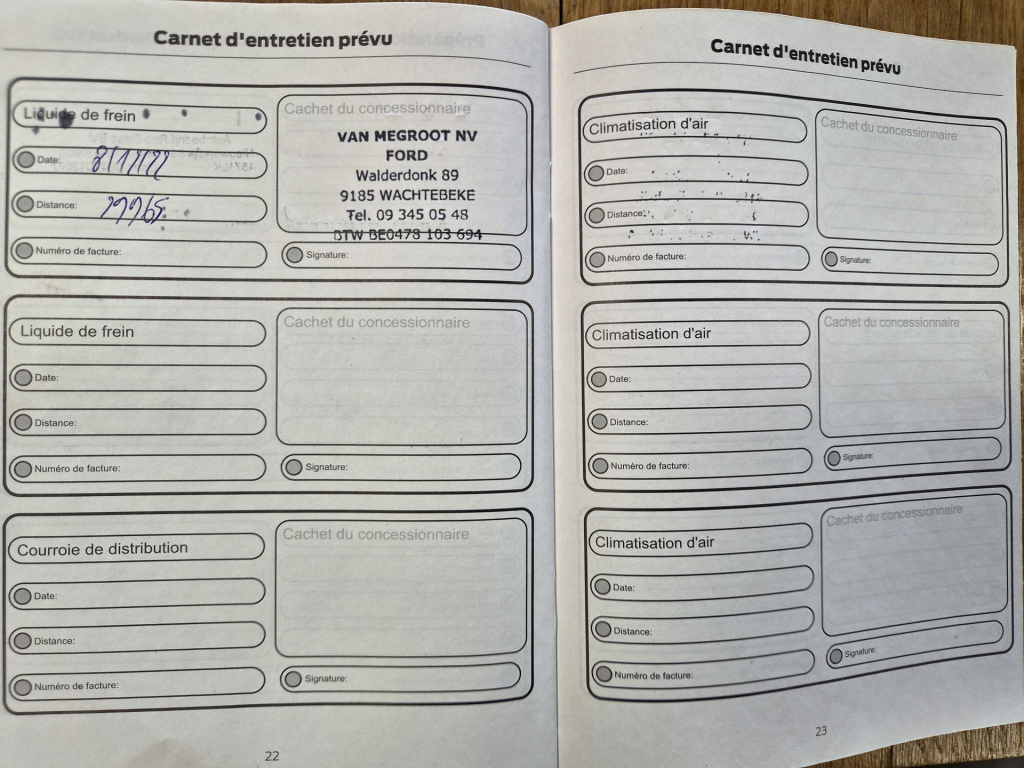 Carnet d'entretien prévu
Liquide de frein
Date: 8/12/22
Distance: 29965
Numéro de facture:
Cachet du concessionnaire
VAN MEGROOT NV
FORD
Walderdonk 89
9185 WACHTEBEKE
Tel. 09 345 05 48
BTW BE0478 103 694
Signature:
Liquide de frein
Date:
Distance:
Numéro de facture:
Cachet du concessionnaire
Signature:
Courroie de distribution
Date:
Distance:
Numéro de facture:
Cachet du concessionnaire
Signature:
22
Carnet d'entretien prévu
Climatisation d'air
Date:
Distance:
Numéro de facture:
Cachet du concessionnaire
Signature:
Climatisation d'air
Date:
Distance:
Numéro de facture:
Cachet du concessionnaire
Signature:
Climatisation d'air
Date:
Distance:
Numéro de facture:
Cachet du concessionnaire
Signature:
23